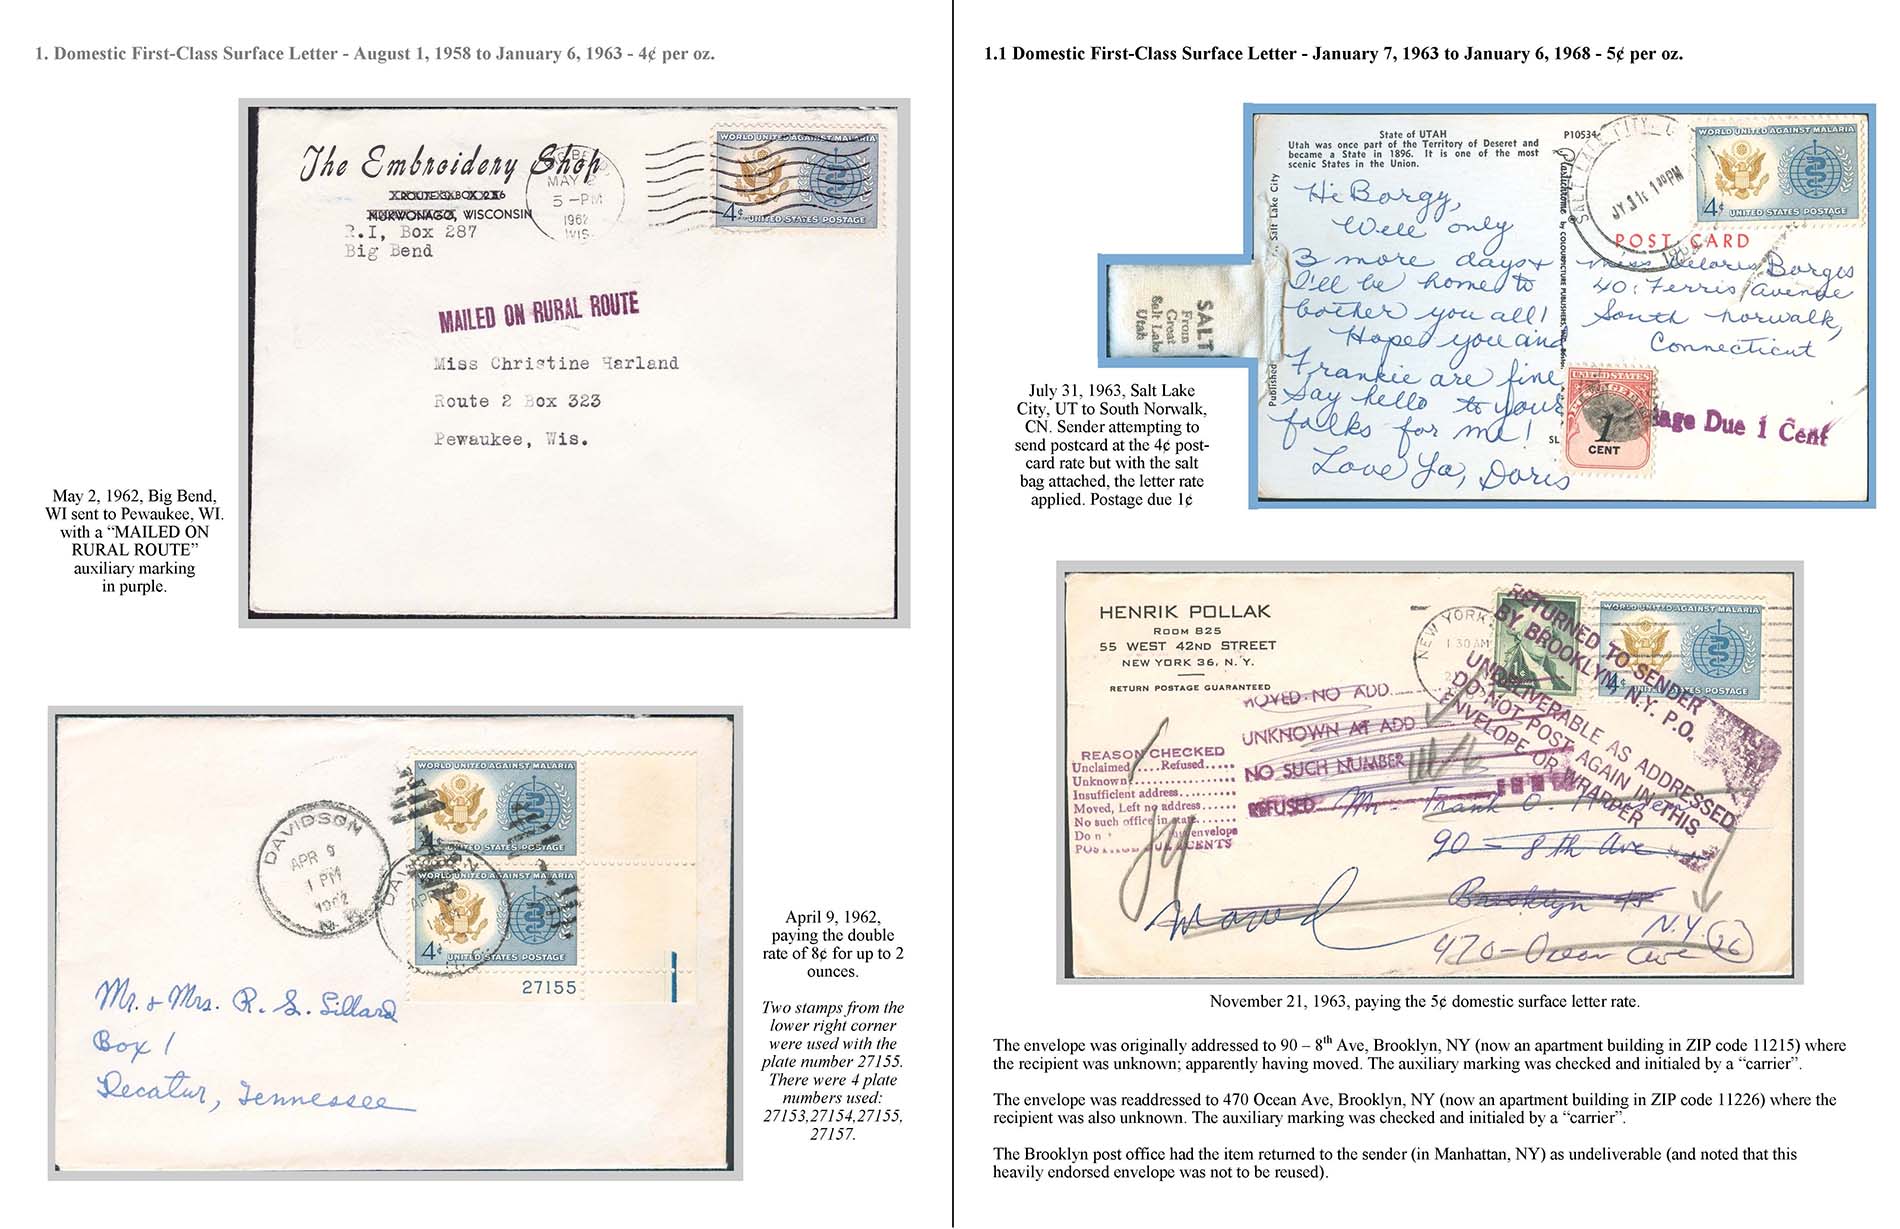 1. Domestic First-Class Surface Letter - August 1, 1958 to January 6, 1963 - 4¢ per oz.
The Embroidery Shop
ROUTE BOX 256
MUKWONAGO, WISCONSIN
R.I, Box 287
Big Bend
BIG BEND
MAY 2
5 -PM
1962
WIS.
WORLD UNITED AGAINST MALARIA
4¢ UNITED STATES POSTAGE
MAILED ON RURAL ROUTE
Miss Christine Harland
Route 2 Box 323
Pewaukee, Wis.
May 2, 1962, Big Bend,
WI sent to Pewaukee, WI.
with a “MAILED ON
RURAL ROUTE”
auxiliary marking
in purple.
WORLD UNITED AGAINST MALARIA
4¢ UNITED STATES POSTAGE
WORLD UNITED AGAINST MALARIA
4¢ UNITED STATES POSTAGE
27155
DAVIDSON
APR 9
1 PM
1962
N.
Mr. & Mrs. R. S. Lillard
Box 1
Decatur, Tennessee
April 9, 1962,
paying the double
rate of 8¢ for up to 2
ounces.
Two stamps from the
lower right corner
were used with the
plate number 27155.
There were 4 plate
numbers used:
27153,27154,27155,
27157.
1.1 Domestic First-Class Surface Letter - January 7, 1963 to January 6, 1968 - 5¢ per oz.
State of UTAH
Utah was once part of the Territory of Deseret and
became a State in 1896. It is one of the most
scenic States in the Union.
P10534
Hi Borgy,
Well only
3 more days &
I'll be home to
bother you all!
Hope you and
Frankie are fine
Say hello to your
folks for me!
Love Ya, Doris
SALT
From
Great
Salt Lake
Utah
Published
Salt Lake City
Plastichrome ® by COLOURPICTURE PUBLISHERS, INC.
SALT LAKE CITY, U
JY 31 1 30 PM
WORLD UNITED AGAINST MALARIA
4¢ UNITED STATES POSTAGE
POST CARD
Miss Delores Borges
40 Ferris Avenue
South Norwalk,
Connecticut
UNITED STATES
1
CENT
SL
age Due 1 Cent
July 31, 1963, Salt Lake
City, UT to South Norwalk,
CN. Sender attempting to
send postcard at the 4¢ post-
card rate but with the salt
bag attached, the letter rate
applied. Postage due 1¢
HENRIK POLLAK
ROOM 825
55 WEST 42ND STREET
NEW YORK 36, N. Y.
RETURN POSTAGE GUARANTEED
NEW YORK
1 30 AM
WORLD UNITED AGAINST MALARIA
4¢ UNITED STATES POSTAGE
RETURNED TO SENDER
BY BROOKLYN, N.Y. P.O.
UNDELIVERABLE AS ADDRESSED
DO NOT POST AGAIN IN THIS
ENVELOPE OR WRAPPER
MOVED-NO ADD
UNKNOWN AT ADD
NO SUCH NUMBER
REFUSED
REASON CHECKED
Unclaimed....Refused.....
Unknown
Insufficient address
Moved, Left no address
No such office in state
envelope
CENTS
Mr. Frank O.
90 - 8th Ave
Brooklyn 15
N.Y. 26
moved
470 - Ocean Ave
November 21, 1963, paying the 5¢ domestic surface letter rate.
The envelope was originally addressed to 90 – 8th Ave, Brooklyn, NY (now an apartment building in ZIP code 11215) where
the recipient was unknown; apparently having moved. The auxiliary marking was checked and initialed by a “carrier”.
The envelope was readdressed to 470 Ocean Ave, Brooklyn, NY (now an apartment building in ZIP code 11226) where the
recipient was also unknown. The auxiliary marking was checked and initialed by a “carrier”.
The Brooklyn post office had the item returned to the sender (in Manhattan, NY) as undeliverable (and noted that this
heavily endorsed envelope was not to be reused).